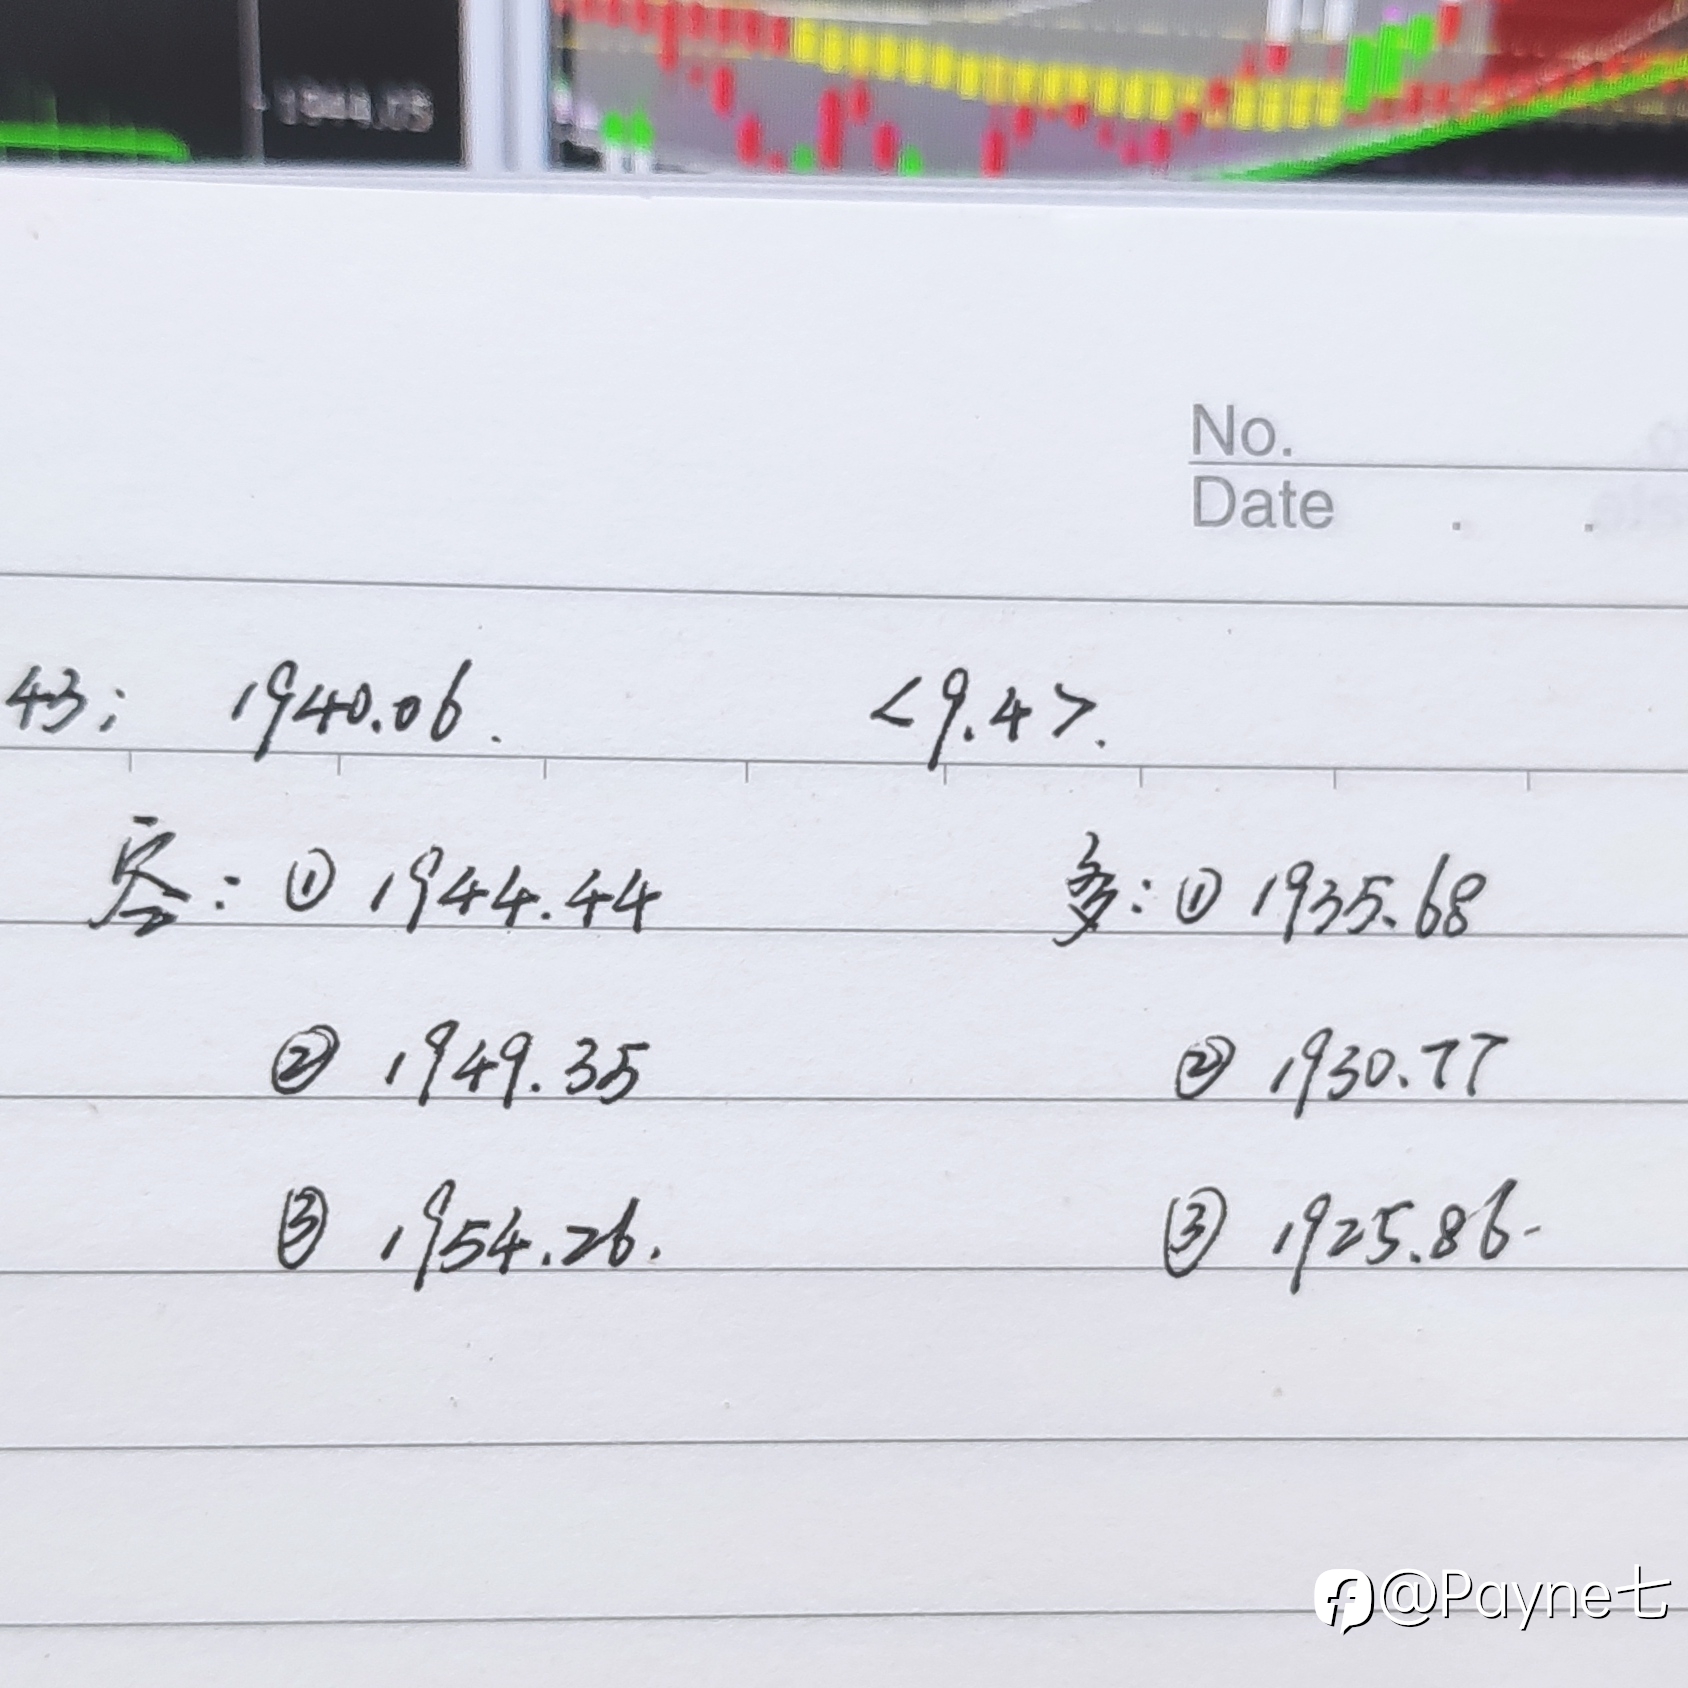 No.
Date . .
43: 1940.06. <9.4>.
空: ① 1944.44 多: ① 1935.68
② 1949.35 ② 1930.77
③ 1954.26. ③ 1925.86.
@Payne七